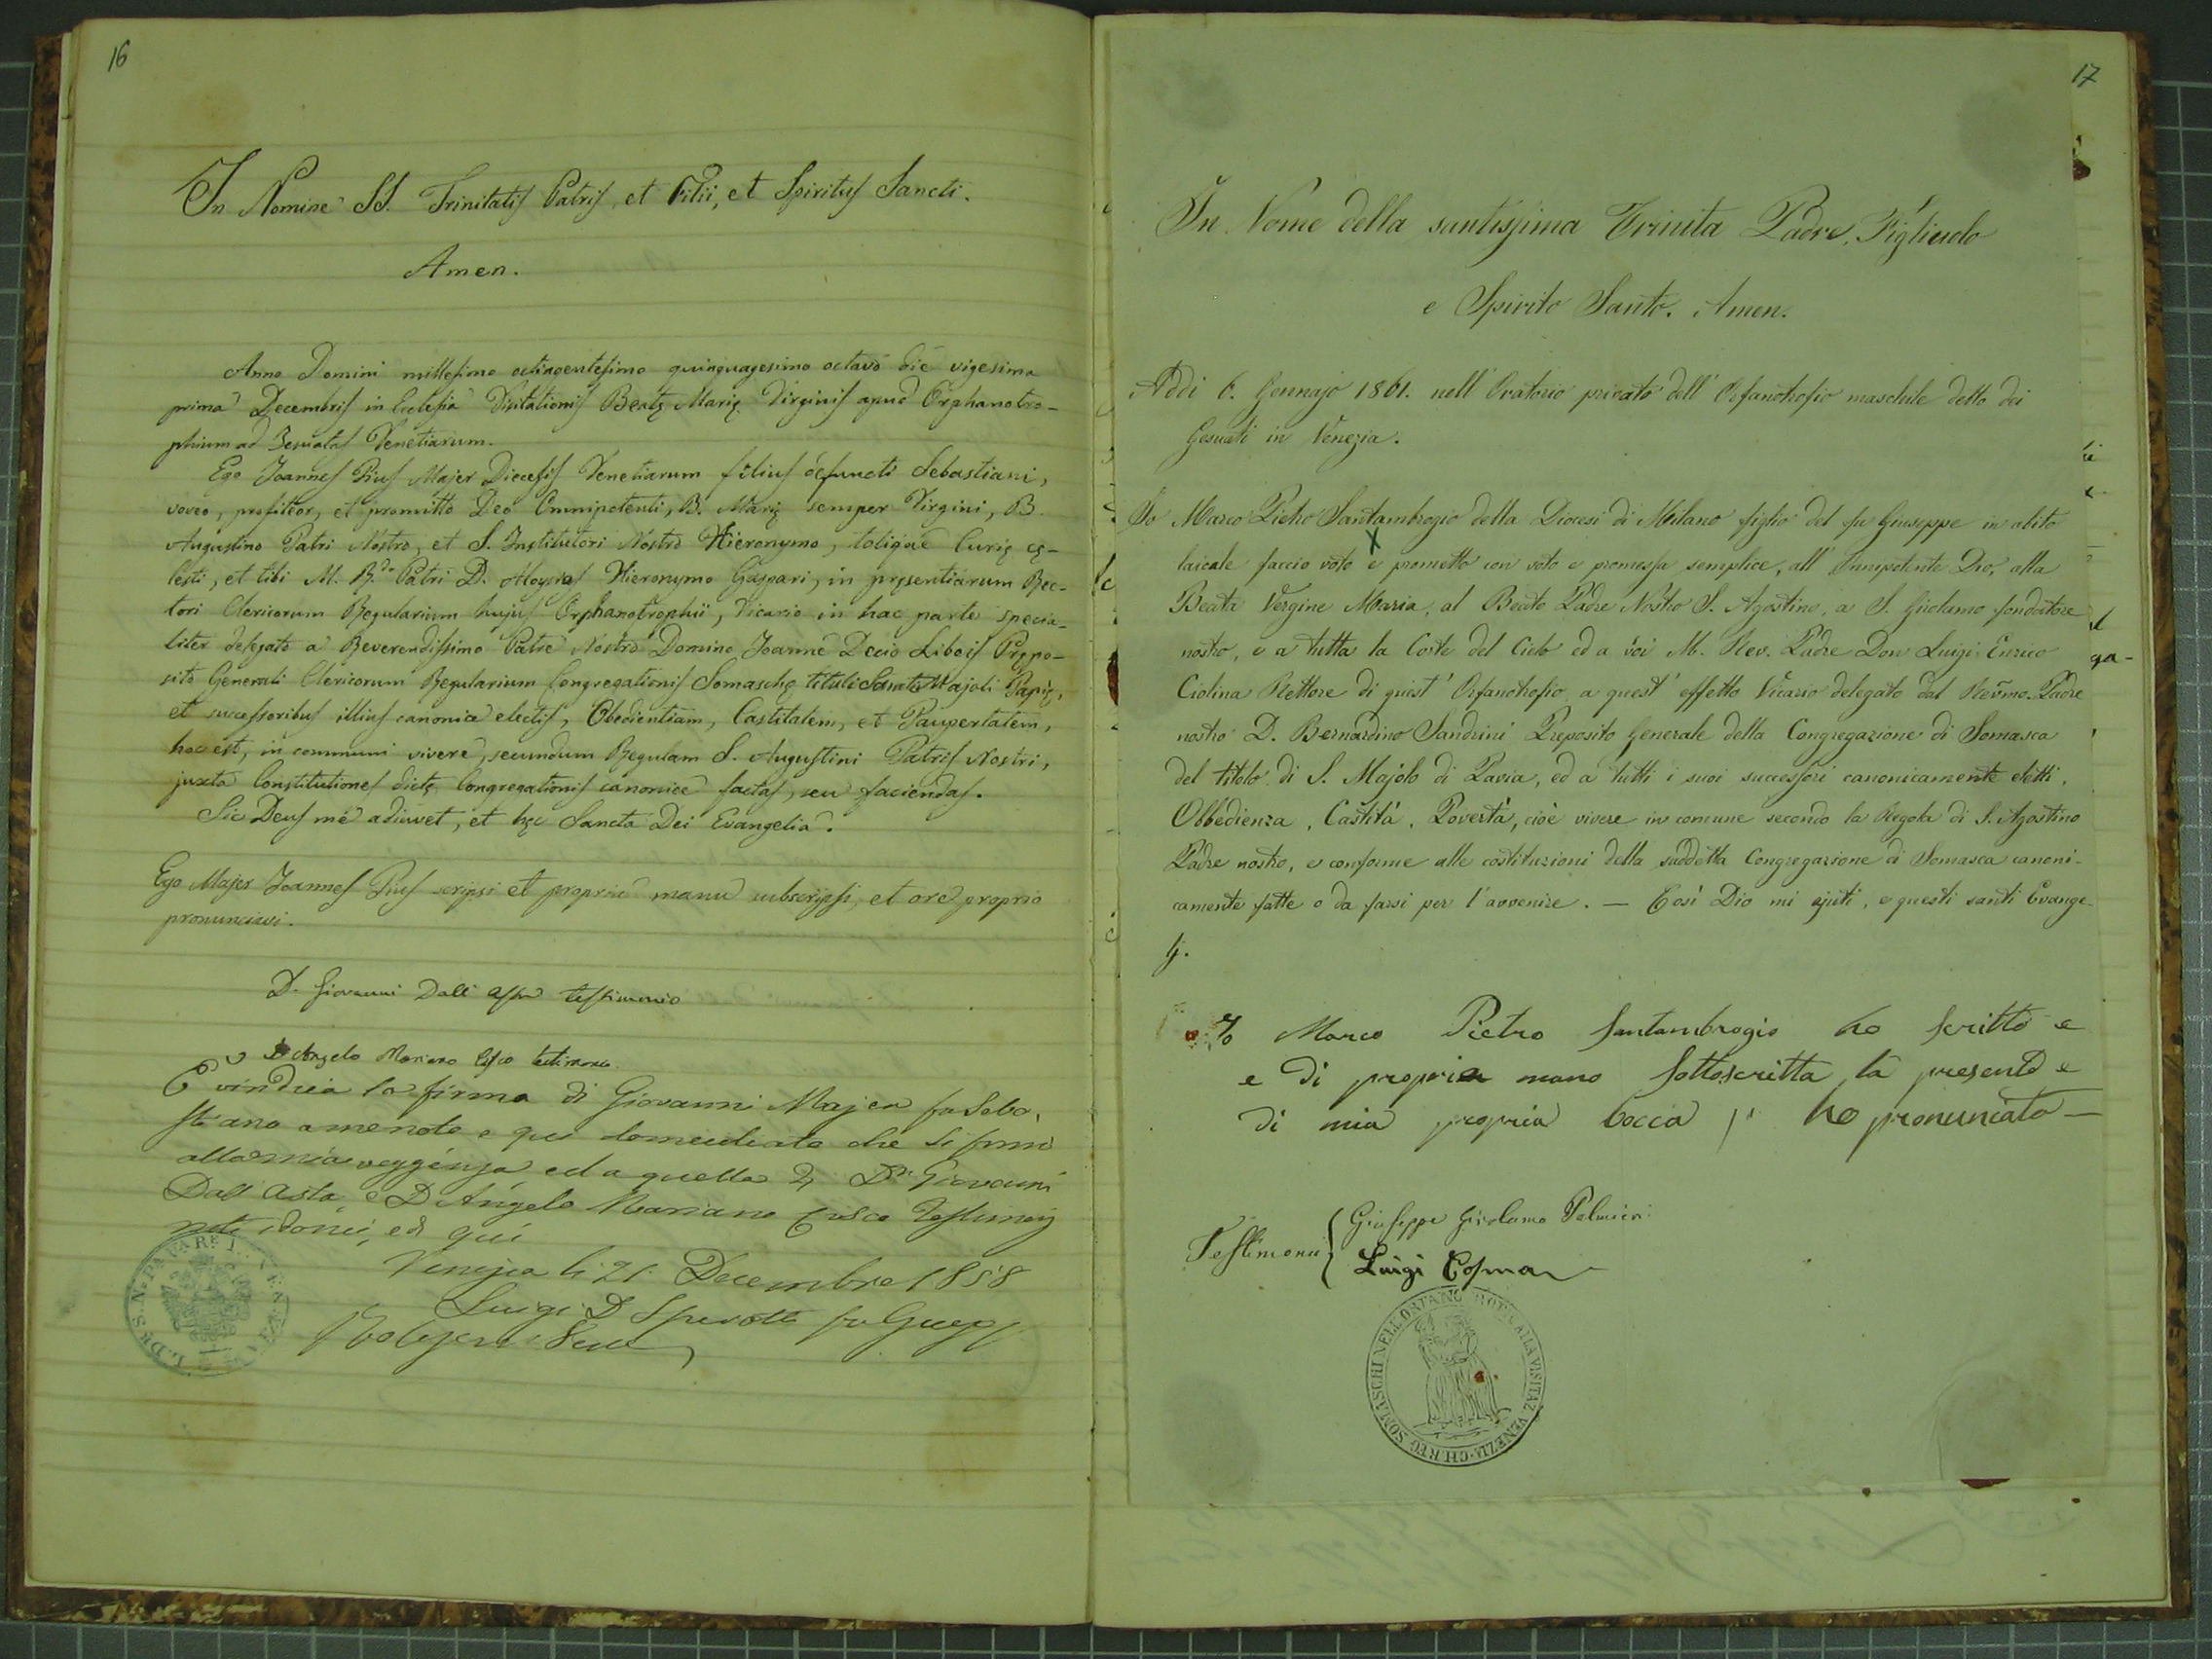 16
In Nomine SS. Trinitatis Patris, et Filii, et Spiritus Sancti.
Amen.
Anno Domini millesimo octingentesimo quinquagesimo octavo die vigesima
prima Decembris in Ecclesia Visitationis Beatę Marię Virginis apud Orphanotro-
phium ad Jesuatas Venetiarum.
Ego Joannes Pius Majer Diecesis Venetiarum filius defuncti Sebastiani,
voveo, profiteor, et promitto Deo Omnipotenti, B. Marię semper Virgini, B.
Augustino Patri Nostro, et S. Institutori Nostro Hieronymo, totique Curię cę-
lesti, et tibi M. R.do Patri D. Aloysio Hieronymo Gaspari, in pręsentiarum Rec-
tori Clericorum Regularium hujus Orphanotrophii, Vicario in hac parte specia-
liter delegato a Reverendissimo Patre Nostro Domino Joanne Decio Libois Prępo-
sito Generali Clericorum Regularium Congregationis Somaschę tituli Sancti Majoli Papię,
et successoribus illius canonice electis, Obedientiam, Castitatem, et Paupertatem,
hoc est, in communi vivere, secundum Regulam S. Augustini Patris Nostri,
juxta Constitutiones dictę Congregationis canonice factas, seu faciendas.
Sic Deus me adiuvet, et hęc Sancta Dei Evangelia.
Ego Majer Joannes Pius scripsi et propria manu subscripsi, et ore proprio
pronunciavi.
D. Giovanni Dall' Asta testimonio
D Angelo Mariano
E vindica la firma di Giovanni Majer fu Seba,
stiano a me noto e qui domiciliato che si firmò
alla mia veggenza ed a quella di Dn Giovanni
Dall Asta e D Angelo Mariano Fusco Testimonj
noti idonei, ed qui
Venezia li 21. Decembre 1858
Luigi D
17
In Nome della santissima Trinita Padre, Figliuolo
e Spirito Santo. Amen.
Addi 6. Gennajo 1861. nell' Oratorio privato dell' Orfanotrofio maschile detto dei
Gesuati in Venezia.
Io Marco Pietro Santambrogio della Diocesi di Milano figlio del fu Giuseppe in abito
X
laicale faccio voto e prometto con voto e promessa semplice, all' Onnipotente Dio, alla
Beata Vergine Maria, al Beato Padre Nostro S. Agostino, a S. Girolamo fondatore
nostro, e a tutta la Corte del Cielo ed a voi M. Rev. Padre Don Luigi Enrico
Ciolina Rettore di quest' Orfanotrofio, a quest' effetto Vicario delegato dal Revmo. Padre
nostro D. Bernardino Sandrini Preposito Generale della Congregazione di Somasca
del titolo di S. Majolo di Pavia, ed a tutti i suoi successori canonicamente eletti,
Obbedienza, Castità, Povertà, cioè vivere in comune secondo la Regola di S. Agostino
Padre nostro, e conforme alle costituzioni della suddetta Congregazione di Somasca canoni-
camente fatte o da farsi per l'avvenire. — Così Dio mi ajuti, e questi santi Evange-
lj.
Io Marco Pietro Santambrogio ho scritto e
e di propria mano sottoscritta la presente e
di mia propria bocca ho pronunciato —
Testimonii { Giuseppe Girolamo Palmieri
Luigi Cosma
CH. REG. SOMASCHI NELL'ORFANOTROF. ALLA VISITAZ. VENEZIA